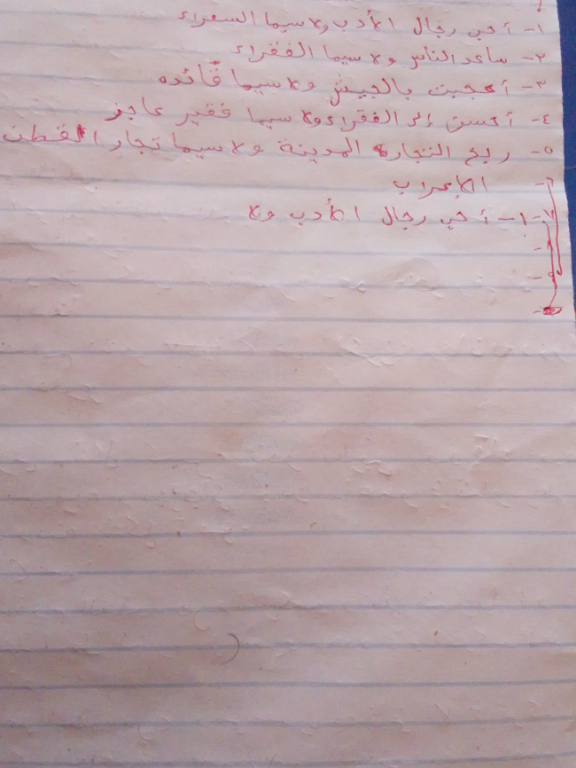 ١- أحب رجال الأدب ولا سيما السعراء
٢- ساعد الناس ولا سيما الفقراء
٣- أعجبت بالجيش ولا سيما قائده
٤- أحسن إلى الفقراء ولا سيما فقير عاجز
٥- ربح التجارة المدينة ولا سيما تجار القطن
٦- الإعراب
٧- ١- أحب رجال الأدب ولا
٨-
٩-